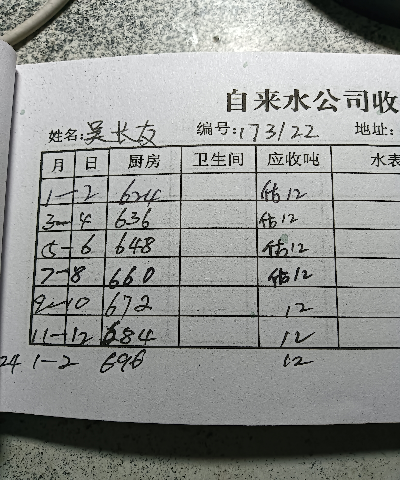 自来水公司收
姓名:吴长友 编号:173122 地址:
月 日 厨房 卫生间 应收吨 水表
1-2 624 估12
3-4 636 估12
5-6 648 估12
7-8 660 估12
9-10 672 12
11-12 684 12
24 1-2 696 12